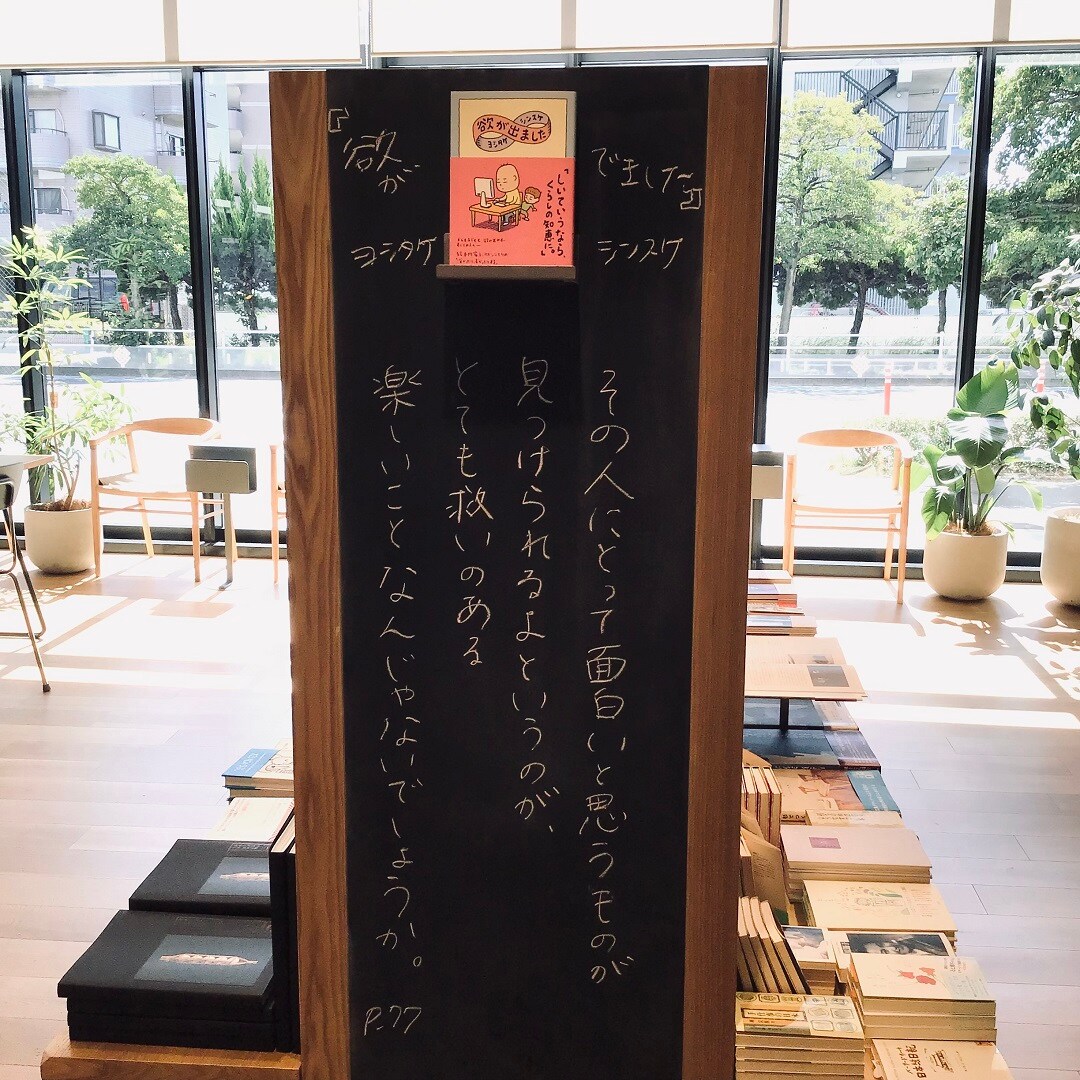 『欲が
でました』
ヨシタケ
シンスケ
欲が出ました
ヨシタケ
シンスケ
「しいていうなら、
くらしの知恵に。」
その人にとって面白いと思うものが
見つけられるよというのが、
とても救いのある
楽しいことなんじゃないでしょうか。
P.77